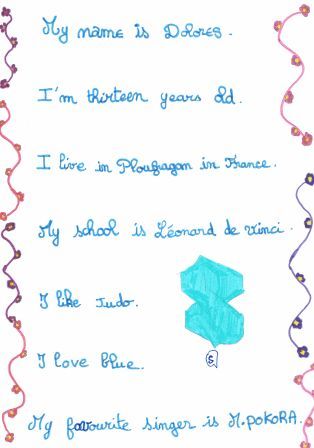 My name is Dolores.
I'm thirteen years old.
I live in Ploufragan in France.
My school is Léonard de Vinci.
I like Judo.
I love blue.
My favourite singer is M.POKORA.